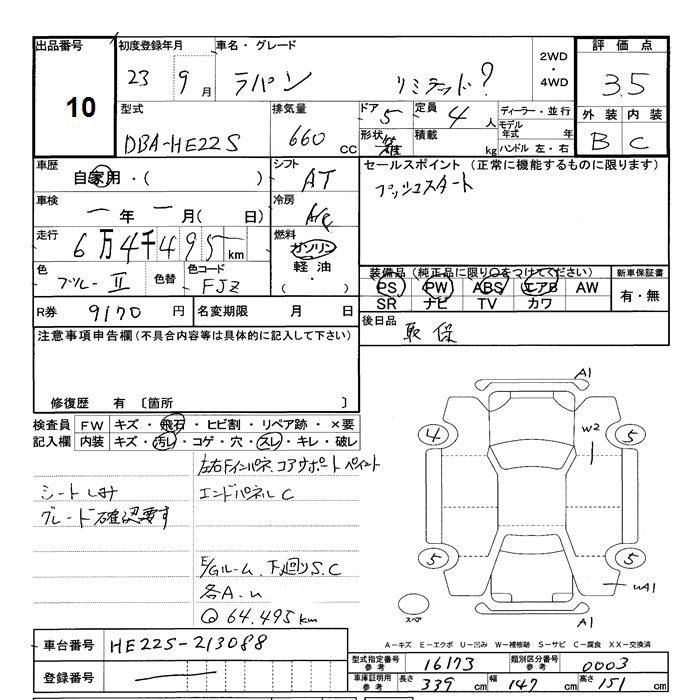 出品番号 10
初度登録年月 23 9月
車名・グレード ラパン リミテッド?
2WD・4WD
評価点 3.5
外装 内装
B C
型式 DBA-HE22S
排気量 660 CC
ドア 5
定員 4人
形状
積載 kg
ディーラー・並行
モデル年式 年
ハンドル 左・右
車歴 自家用・( )
シフト AT
セールスポイント (正常に機能するものに限ります)
プッシュスタート
車検 ー年ー月( 日)
冷房 A/C
走行 6万4千495km
燃料 ガソリン・軽油・( )
色 ブルーII
色替
色コード FJZ
装備品 (純正品に限り○をつけてください)
PS PW ABS エアB AW
SR ナビ TV カワ
新車保証書 有・無
R券 9170円
名変期限 月 日
後日品 取 保
注意事項申告欄 (不具合内容等は具体的に記入して下さい)
修復歴 有 〔箇所 〕
検査員記入欄
FW キズ・飛石・ヒビ割・リペア跡・×要
内装 キズ・汚レ・コゲ・穴・スレ・キレ・破レ
左右Fインパネ、コアサポート ペイント
シートしみ
エンドパネルC
グレード確認要す
E/Gルーム、下廻りS.C
各A.u
Q 64.495km
A1
W2
4 5
5 5
uA1
A1
スペア
A-キズ E-エクボ U-凹み W-補修跡 S-サビ C-腐食 XX-交換済
車台番号 HE22S-213088
登録番号
型式指定番号 参考 16173
類別区分番号 参考 0003
車庫証明用 参考 長さ 339 cm 幅 147 cm 高さ 151 cm